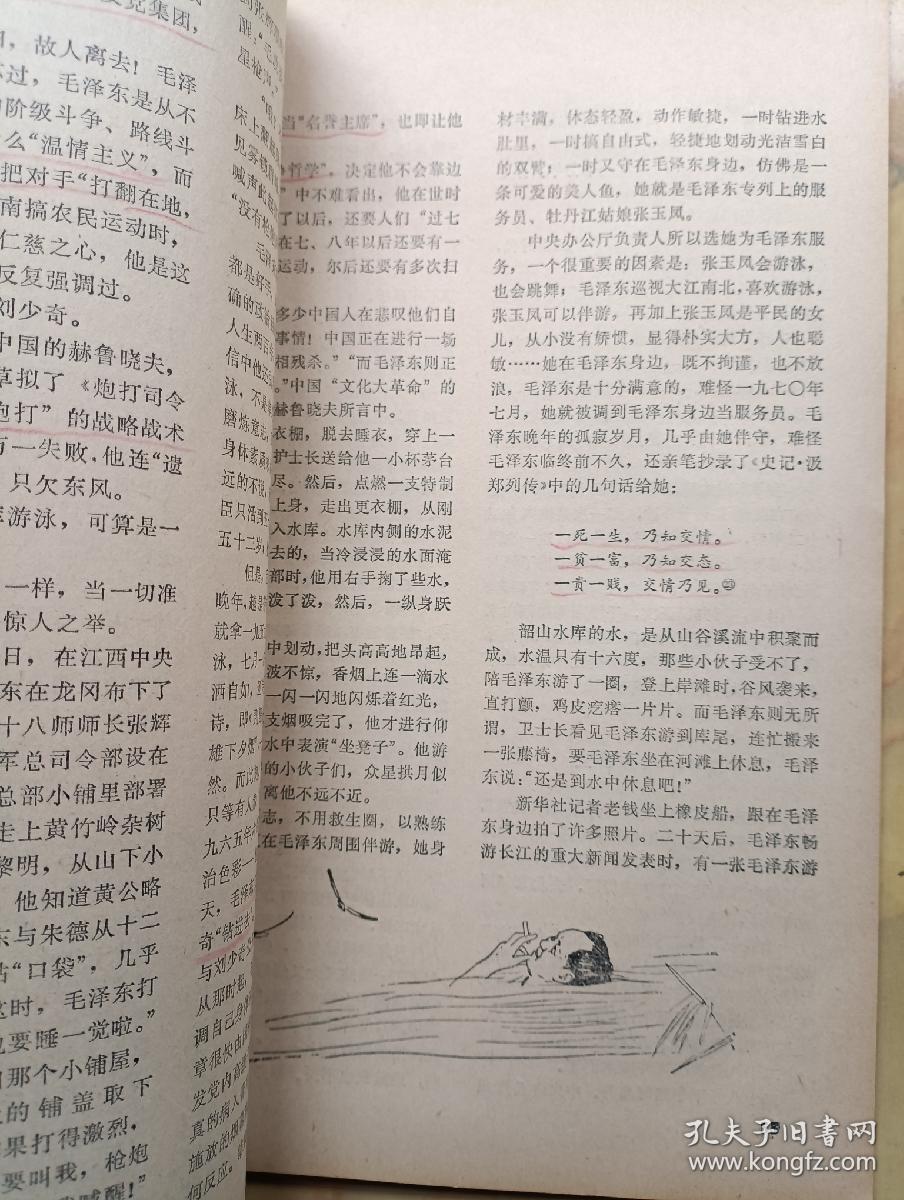 故人离去！毛泽
过，毛泽东是从不
阶级斗争、路线斗
么“温情主义”，而
把对手“打翻在地，
南搞农民运动时，
仁慈之心，他是这
反复强调过。
刘少奇。
中国的赫鲁晓夫，
草拟了《炮打司令
炮打”的战略战术
万一失败，他连“遗
只欠东风。
游泳，可算是一
一样，当一切准
惊人之举。
日，在江西中央
东在龙冈布下了
十八师师长张辉
军总司令部设在
总部小铺里部署
走上黄竹岭杂树
黎明，从山下小
他知道黄公略
东与朱德从十二
“口袋”，几乎
这时，毛泽东打
也要睡一觉啦。”
那个小铺屋，
的铺盖取下
果打得激烈，
要叫我，枪炮
喊醒！”
床上
见雾
喊声
“没有
都是
确的政
人生
信中他
泳，不
磨炼意
身体素
远的不
臣只
五十三
但是
晚年，
就拿一
泳，七月
洒自如，
诗，即
雄下夕
然。而
只等有人
九六五年
治色彩一
天，毛泽
奇“钻进去
与刘少奇
从那时起
调自己身
章很快由
发党内高
真的病入
施放的烟
何反应。
当“名誉主席”，也即让他
哲学”，决定他不会靠边
中不难看出，他在世时
了以后，还要人们“过七
在七、八年以后还要有一
运动，尔后还要有多次扫
多少中国人在悲叹他们自
事情！中国正在进行一场
相残杀。”“而毛泽东则正
”中国“文化大革命”的
赫鲁晓夫所言中。
衣棚，脱去睡衣，穿上一
护士长送给他一小杯茅台
尽。然后，点燃一支特制
上身，走出更衣棚，从刚
入水库。水库内侧的水泥
去的，当冷浸浸的水面淹
部时，他用右手掬了些水，
泼了泼，然后，一纵身跃
中划动，把头高高地昂起，
波不惊，香烟上连一滴水
一闪一闪地闪烁着红光，
支烟吸完了，他才进行仰
水中表演“坐凳子”。他游
的小伙子们，众星拱月似
离他不远不近。
志，不用救生圈，以熟练
在毛泽东周围伴游，她身
材丰满，体态轻盈，动作敏捷，一时钻进水
肚里，一时搞自由式，轻捷地划动光洁雪白
的双臂；一时又守在毛泽东身边，仿佛是一
条可爱的美人鱼，她就是毛泽东专列上的服
务员、牡丹江姑娘张玉凤。
中央办公厅负责人所以选她为毛泽东服
务，一个很重要的因素是：张玉凤会游泳，
也会跳舞；毛泽东巡视大江南北，喜欢游泳，
张玉凤可以伴游，再加上张玉凤是平民的女
儿，从小没有娇惯，显得朴实大方，人也聪
敏……她在毛泽东身边，既不拘谨，也不放
浪，毛泽东是十分满意的，难怪一九七〇年
七月，她就被调到毛泽东身边当服务员。毛
泽东晚年的孤寂岁月，几乎由她伴守，难怪
毛泽东临终前不久，还亲笔抄录了《史记·汲
郑列传》中的几句话给她：
一死一生，乃知交情。
一贫一富，乃知交态。
一贵一贱，交情乃见。
韶山水库的水，是从山谷溪流中积聚而
成，水温只有十六度，那些小伙子受不了，
陪毛泽东游了一圈，登上岸滩时，谷风袭来，
直打颤，鸡皮疙瘩一片片。而毛泽东则无所
谓，卫士长看见毛泽东游到库尾，连忙搬来
一张藤椅，要毛泽东坐在河滩上休息，毛泽
东说：“还是到水中休息吧！”
新华社记者老钱坐上橡皮船，跟在毛泽
东身边拍了许多照片。二十天后，毛泽东畅
游长江的重大新闻发表时，有一张毛泽东游
孔夫子旧书网
www.kongfz.com